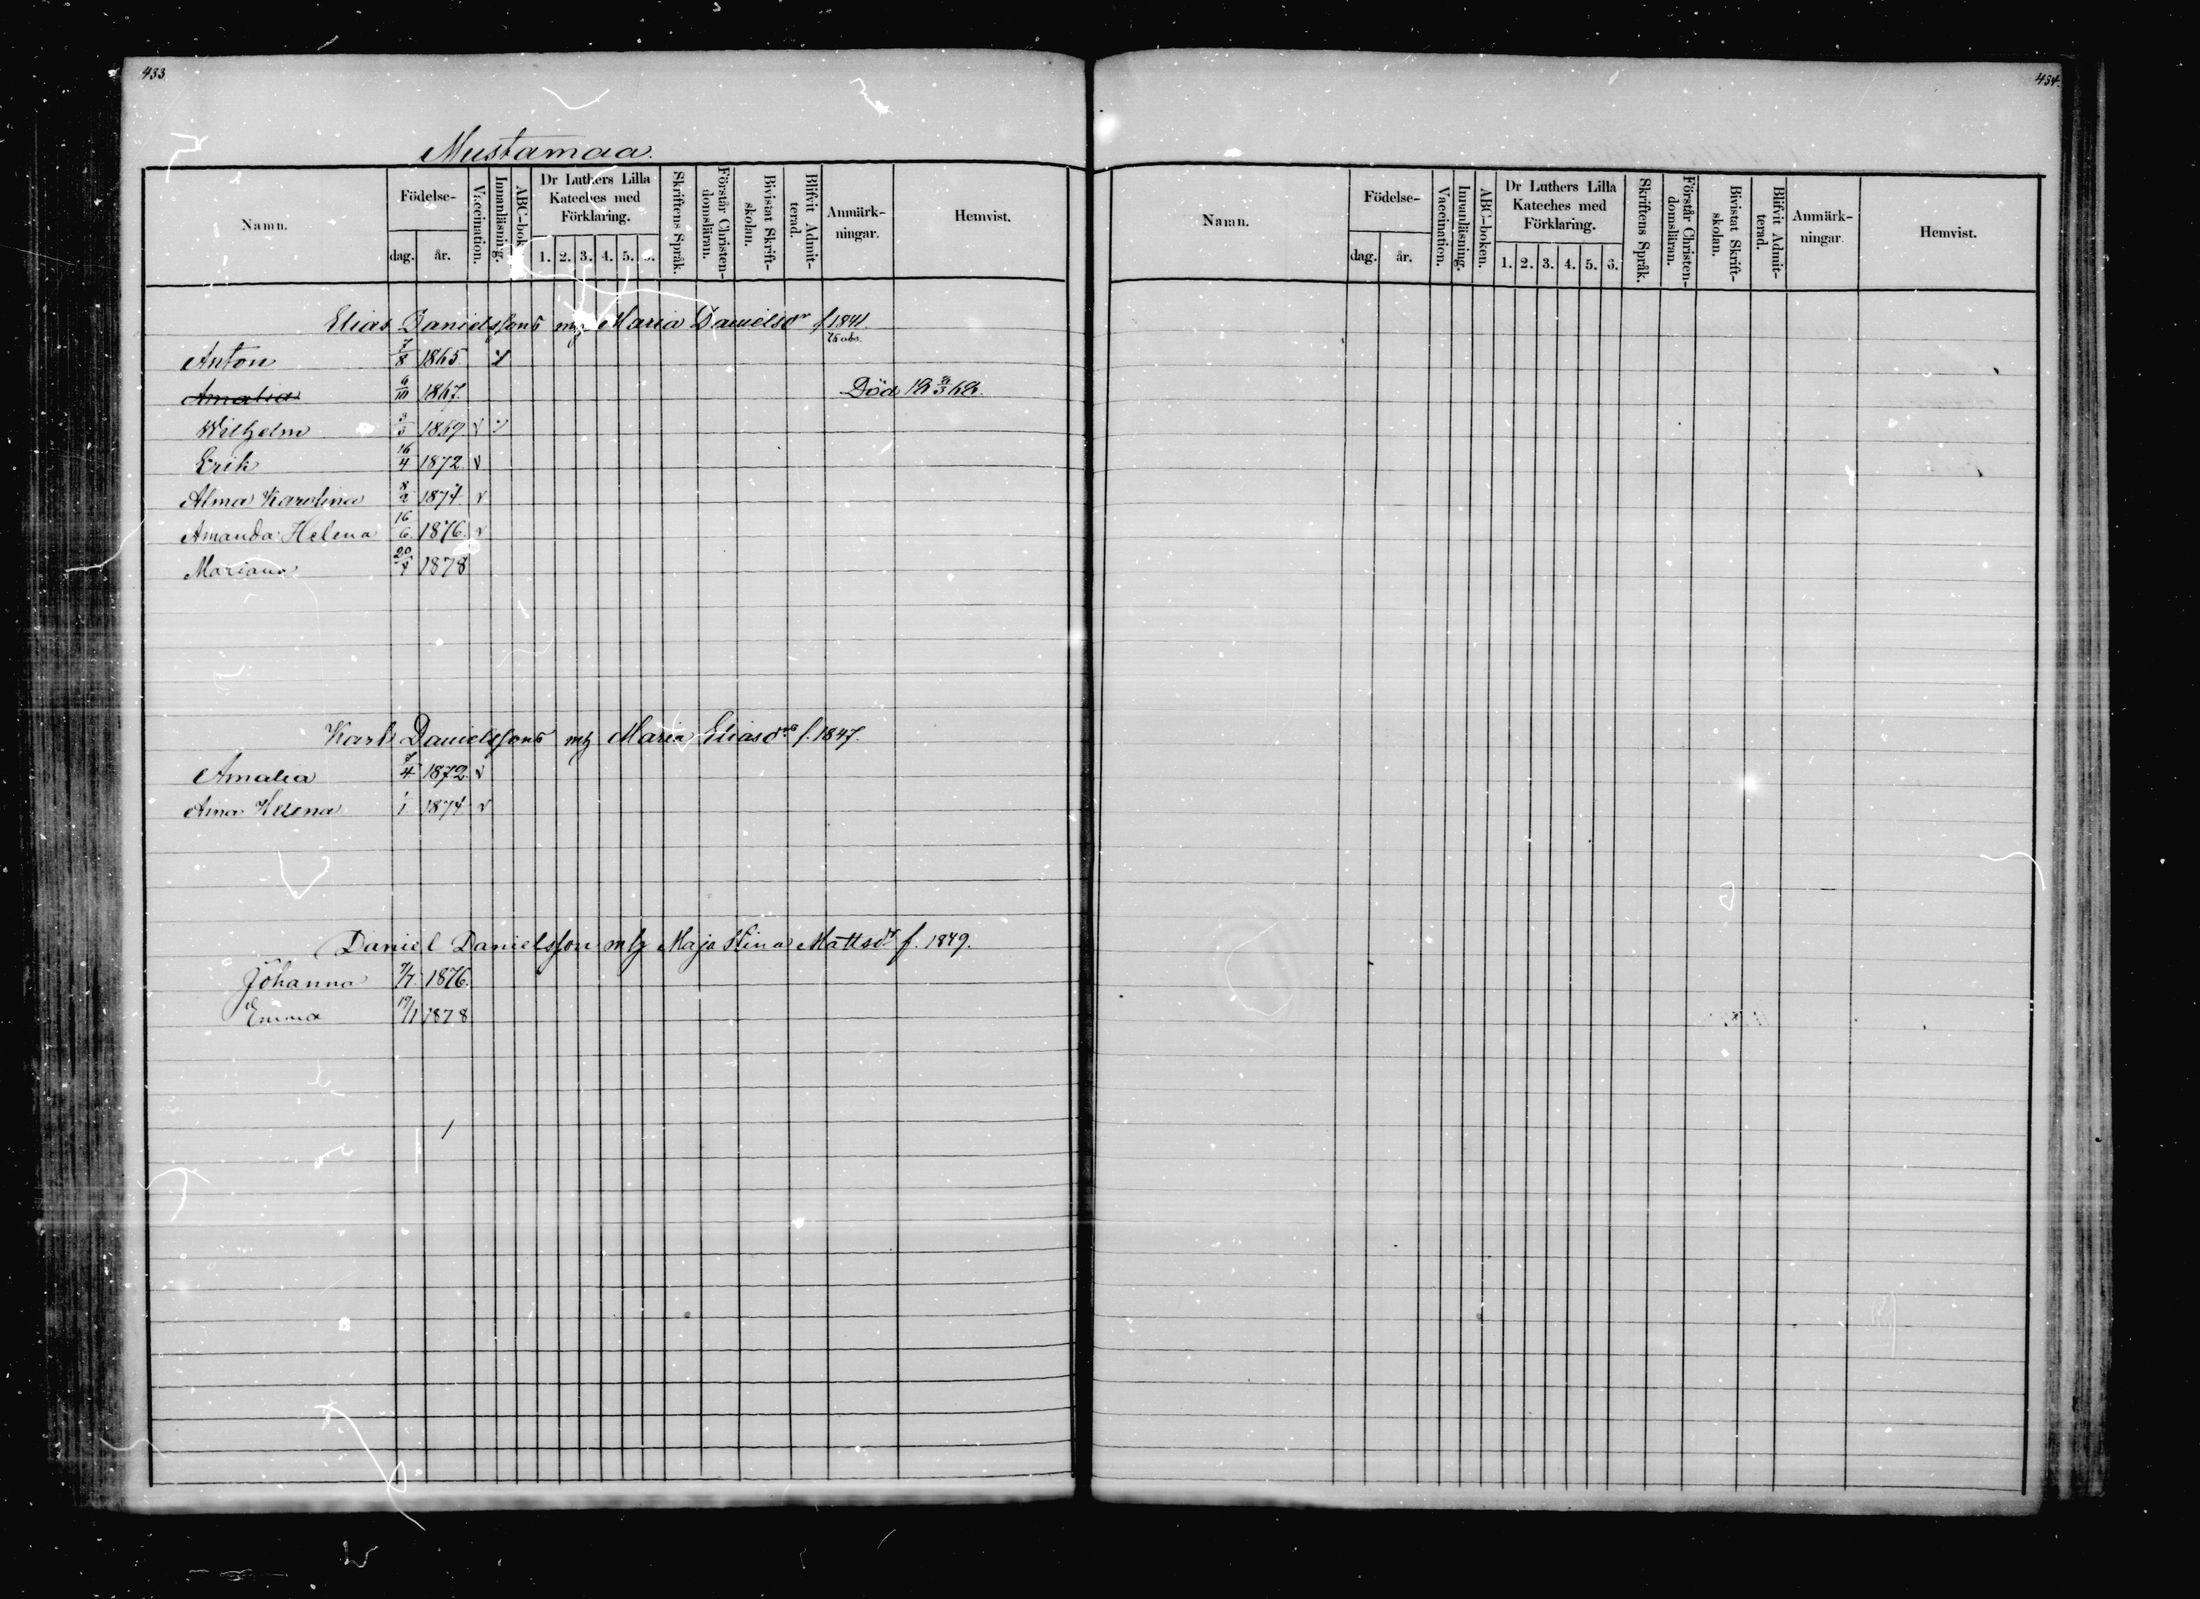 433
Mustamaa.
Namn. Födelse- dag. år. Vaccination. Innanläsning. ABC-bok Dr Luthers Lilla Kateches med Förklaring. 1. 2. 3. 4. 5. Skriftens Språk. Förstår Christen-domsläran. Bivistat Skrift-skolan. Blifvit Admit-terad. Anmärk-ningar. Hemvist.
Elias Danielssons m Maria Danielsdr f 1841.
Anton 7/8 1865
Amalia 9/10 1867. Död
Wilhelm 1869 v
Erik 16/4 1872 v
Alma Karolina 8/2 1874 v
Amanda Helena 16/6 1876. v
Mariana 20/4 1878
Karl Danielssons m Maria Eliasdrs f. 1847.
Amalia 7/4 1872 v
Helena 1/1 1874 v
Daniel Danielsson m Maja Stina Mattsdr f. 1849.
Johanna 7/7. 1876.
Emma 19/1 1878
434.
Namn. Födelse- dag. år. Vaccination. Innanläsning. ABC-boken. Dr Luthers Lilla Kateches med Förklaring. 1. 2. 3. 4. 5. 6. Skriftens Språk. Förstår Christen-domsläran. Bivistat Skrift-skolan. Blifvit Admit-terad. Anmärk-ningar. Hemvist.